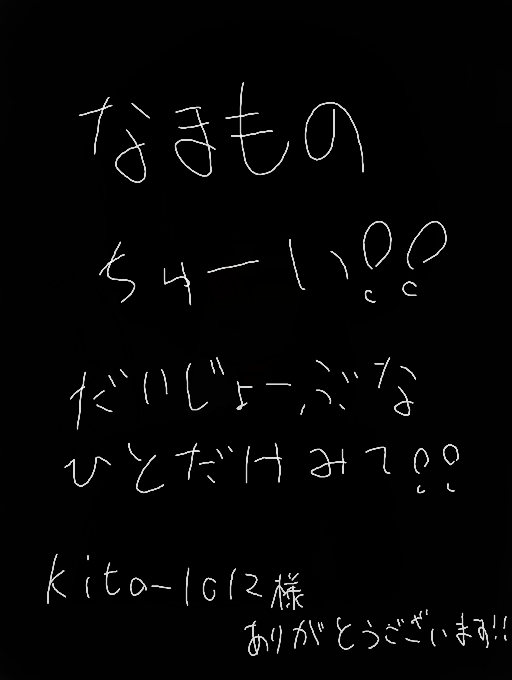 なまもの
ちゅーい!!
だいじょーぶな
ひとだけみて!!
kita-1012様
ありがとうございます!!